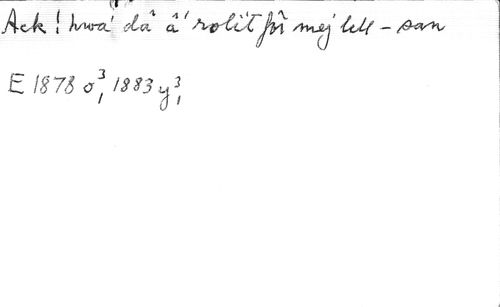 Ack! hwá då â' rolit för mej lell - san
E 1878 o³₁, 1883 y³₁